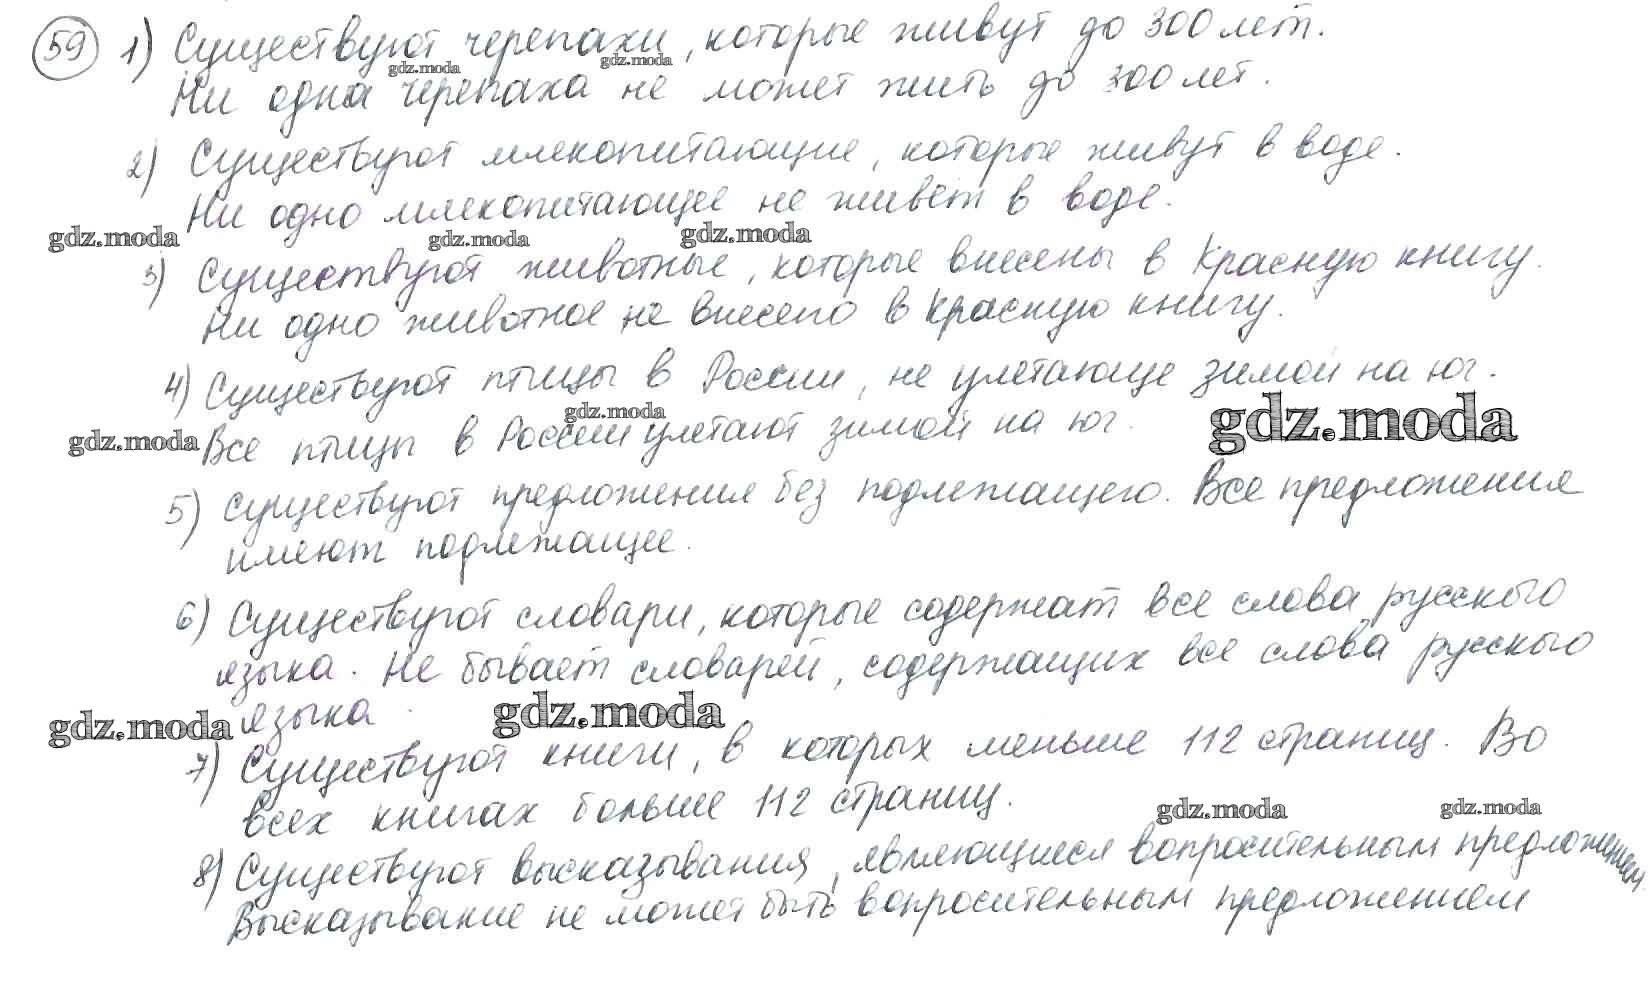 59 1) Существуют черепахи, которые живут до 300 лет.
gdz.moda gdz.moda
Ни одна черепаха не может жить до 300 лет.
2) Существуют млекопитающие, которые живут в воде.
Ни одно млекопитающее не живет в воде.
gdz.moda gdz.moda gdz.moda
3) Существуют животные, которые внесены в Красную книгу.
Ни одно животное не внесено в Красную книгу.
4) Существуют птицы в России, не улетающие зимой на юг.
gdz.moda gdz.moda
gdz.moda Все птицы в России улетают зимой на юг.
5) Существуют предложения без подлежащего. Все предложения
имеют подлежащее.
6) Существуют словари, которые содержат все слова русского
языка. Не бывает словарей, содержащих все слова русского
gdz.moda языка. gdz.moda
7) Существуют книги, в которых меньше 112 страниц. Во
всех книгах больше 112 страниц.
gdz.moda gdz.moda
8) Существуют высказывания, являющиеся вопросительным предложением.
Высказывание не может быть вопросительным предложением